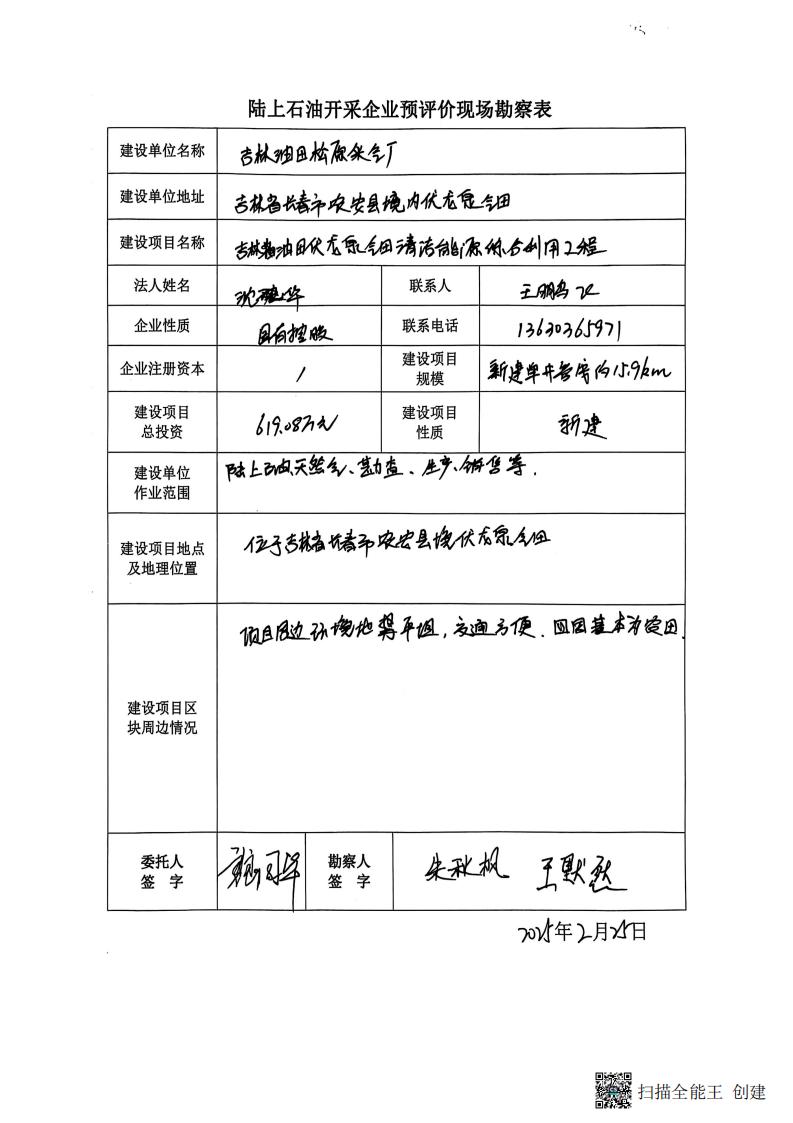 陆上石油开采企业预评价现场勘察表
建设单位名称 吉林油田松原采气厂
建设单位地址 吉林省长春市农安县境内伏龙泉气田
建设项目名称 吉林油田伏龙泉气田清洁能源综合利用工程
法人姓名 沈 华 联系人 王鹏飞
企业性质 国有控股 联系电话 13630365971
企业注册资本 / 建设项目
规模 新建单井管线约15.9km
建设项目
总投资 619.08万元 建设项目
性质 新建
建设单位
作业范围 陆上石油、天然气、勘查、生产、销售等.
建设项目地点
及地理位置 位于吉林省长春市农安县境伏龙泉气田
建设项目区
块周边情况 项目周边环境地势平坦,交通方便.四周基本为农田.
委托人
签 字 勘察人
签 字 朱秋枫 王默然
2025年2月25日
扫描全能王 创建